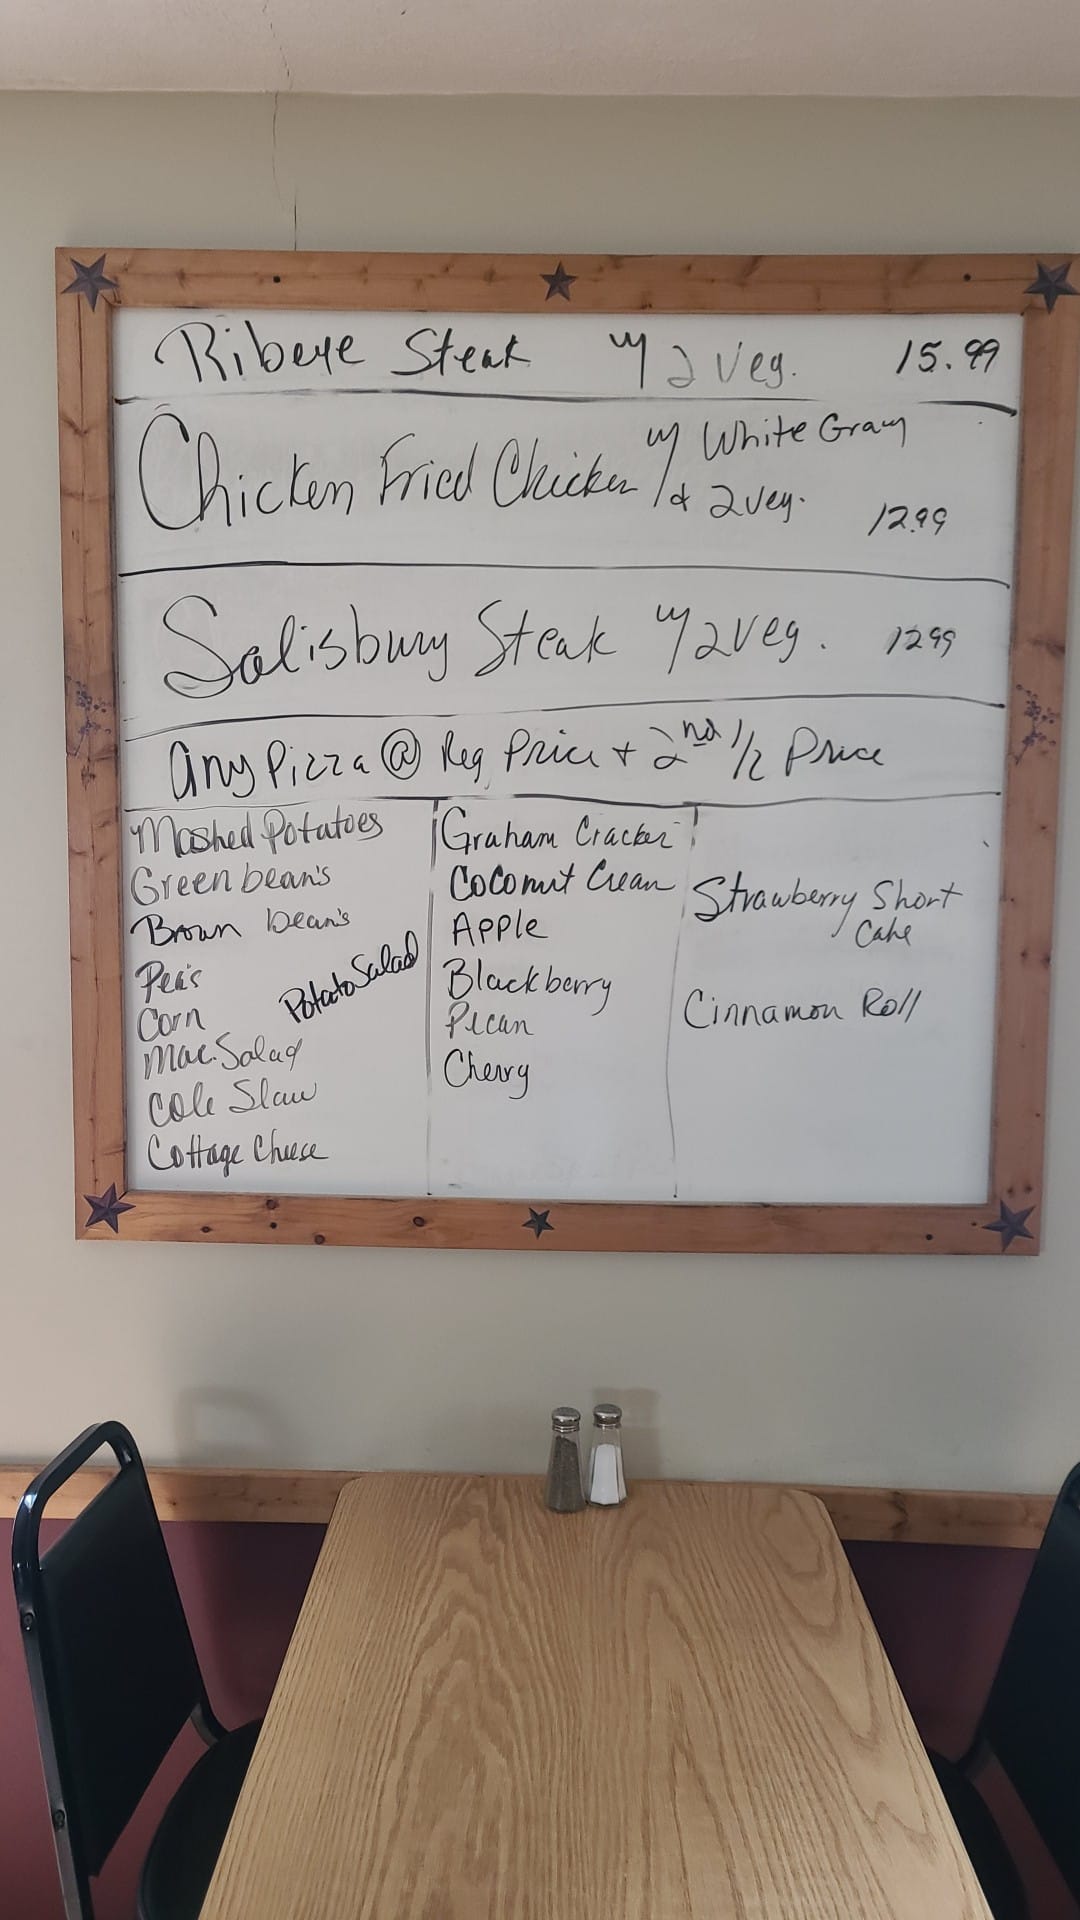 Ribeye Steak w/ 2 Veg. 15.99
Chicken Fried Chicken w/ White Gravy
& 2 Veg. 12.99
Salisbury Steak w/ 2 Veg. 12.99
Any Pizza @ Reg Price + 2nd 1/2 Price
Mashed Potatoes
Green bean's
Brown bean's
Pea's
Corn
Potato Salad
Mac. Salad
Cole Slaw
Cottage Cheese
Graham Cracker
Coconut Cream
Apple
Blackberry
Pecan
Cherry
Strawberry Short
Cake
Cinnamon Roll